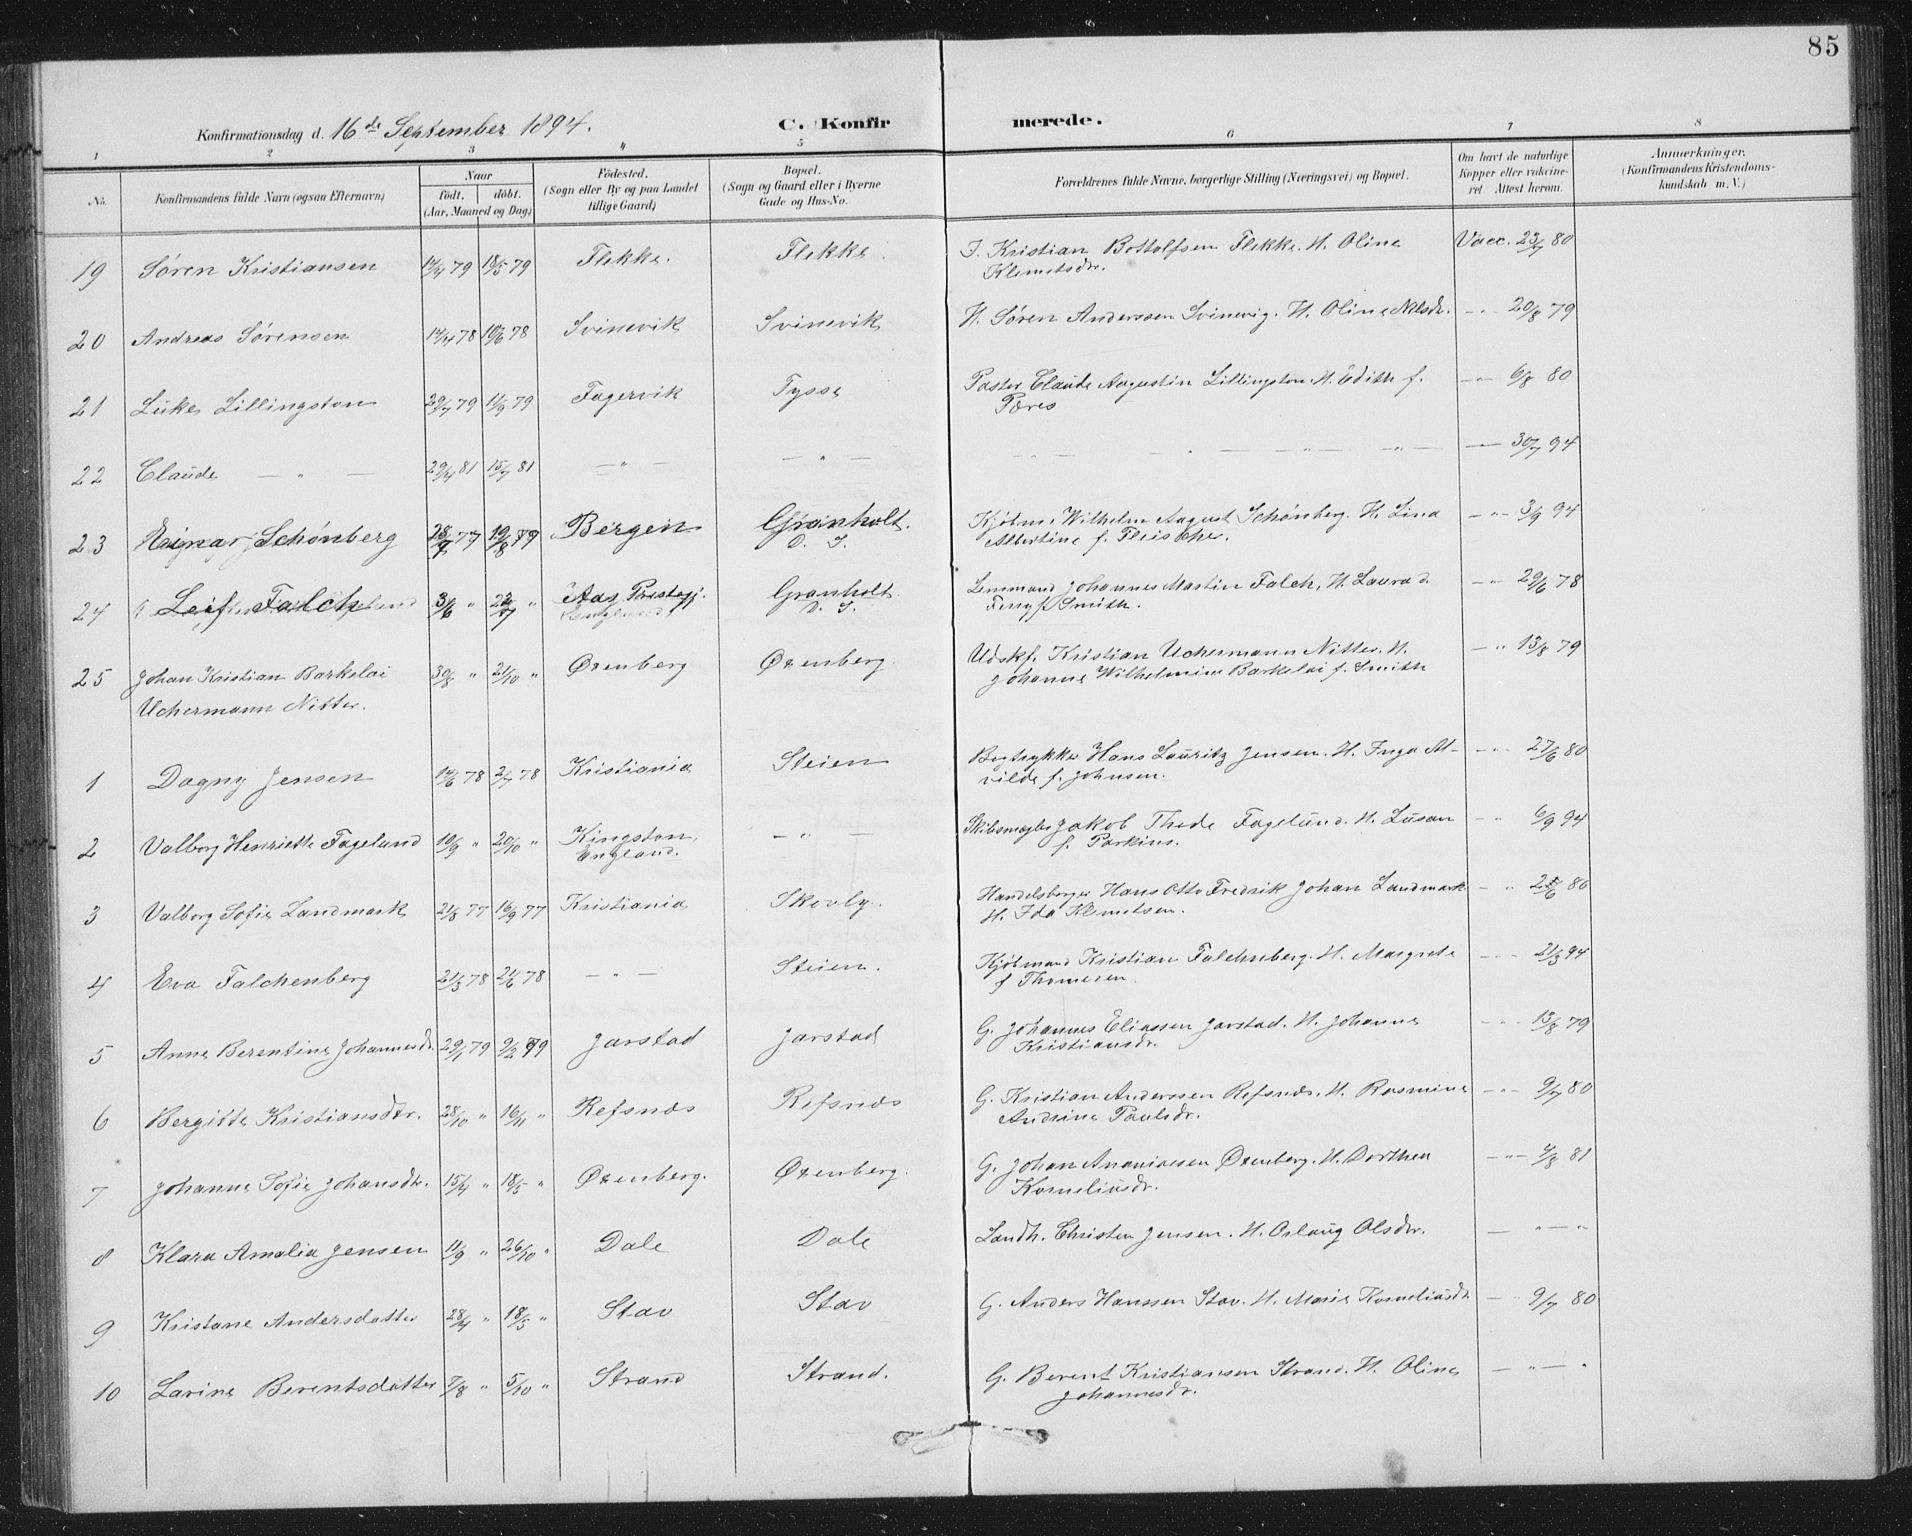 85
Konfirmationsdag d. 16de September 1894. C. Konfirmerede.
1 2 3 4 5 6 7 8
No. Konfirmandens fulde Navn (ogsaa Efternavn) Naar født. døbt. (Aar, Maaned og Dag) Fødested. (Sogn eller By og paa Landet tillige Gaard) Bopæl. (Sogn og Gaard eller i Byerne Gade og Hus-No. Forældrenes fulde Navne, borgerlige Stilling (Næringsvei) og Bopæl. Om havt de naturlige Kopper eller vakcineret Attest herom. Anmerkninger. (Konfirmandens Kristendomskundskab m. V.)
19 Søren Kristiansen 14/4 79 18/5 79 Flekke. Flekke. I. Kristian Bottolfsen Flekke. H. Oline Vacc. 23/7 80
Klemetsdr.
20 Andreas Sørensen 14/4 78 10/6 78 Svinevik Svinevik H. Søren Anderssen Svinevig. H. Oline Nilsdr. — " 20/8 79
21 Luke Lillingston 29/7 79 11/9 79 Fagervik Tysse Pastor Claude Augustin Lillingston. H. Edith f. — " 6/8 80
22 Claude — " — 29/4 81 15/7 81 — " — — " — — " — 30/7 94
23 Schønberg 28/7 77 19/8 89 Bergen Granholt. Kjøbm. Wilhelm August Schönberg. H. Lina — " 3/9 94
D. S. Albertine f. Fleischer.
24 Leif Falch 3/6 " " Aas Prstgj. Granholt. Lensmand Johannes Martin Falch, H. Laura d. — " 29/6 78
D. S. Smith.
25 Johan Kristian Barkelai 30/8 " 21/10 " Øxenberg Øxenberg. Udskf. Kristian Uchermann Nitter. H. — " 13/8 79
Uchermann Nitter. Johanne Wilhelmine Barkelai f. Smith
1 Dagny Jensen 78 2/7 78 Kristiania Steien Bogtrykker Hans Lauritz Jensen. H. Inga Al- — " 27/6 80
vilde f. Johnsen.
2 Valborg Henriette Fagelund 10/9 " 20/10 " Kingston, — " — Jakob Thode Fagelund. H. Susan — " 6/9 94
England. f. Parkins.
3 Valborg Sofie Landmark 21/8 77 16/9 77 Kristiania Skovly. Handelsborger Hans Otto Fredrik Johan Landmark — " 80
H. Ida Klemetsen.
4 Eva Falchenberg 21/3 78 2/6 78 — " — Steien. Kjøbmand Kristian Falchenberg. H. Margrete — " 21/3 94
f Thomesen.
5 Anne Berentine Johannesdr. 29/1 79 9/2 79 Jarstad Jarstad G. Johannes Eliassen Jarstad. H. Johanne — " 13/8 79
Kristiansdr.
6 Bergitte Kristiansdtr. 28/10 " 16/11 " Refsnæs Refsnæs G. Kristian Anderssen Refsnæs. H. Rasmine — " 9/7 80
Andrine Paulsdr.
7 Johanne Sofie Johansdr. 15/4 " 18/5 " Øxenberg. Øxenberg. G. Johan Ananiassen Øxenberg. H. Dorthea — " — 4/8 81
Korneliusdr.
8 Klara Amalia Jensen 11/9 " 26/10 " Dale Dale Landh. Christen Jensen. H. Oslaug Olsdr. — " — "
9 Kristane Andersdatter 28/4 " 18/5 " Stav Stav G. Anders Hanssen Stav. H. Marie Korneliusdr. — " 9/7 80
10 Larine Berentsdatter 7/8 " 5/10 " Strand Strand. G. Berent Kristiansen Strand. H. Oline — " — "
Johannesdr.